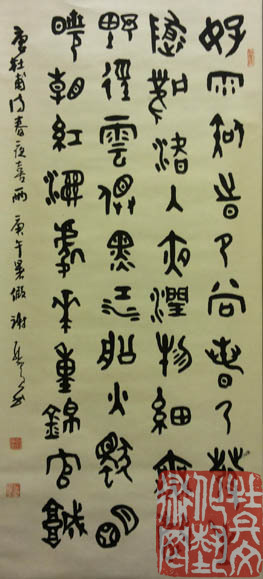 好雨知時節當春乃發
隨風潛入夜潤物細無
野徑雲俱黑江船火獨明
曉看紅濕處花重錦官城
唐杜甫詩春夜喜雨 庚午 謝